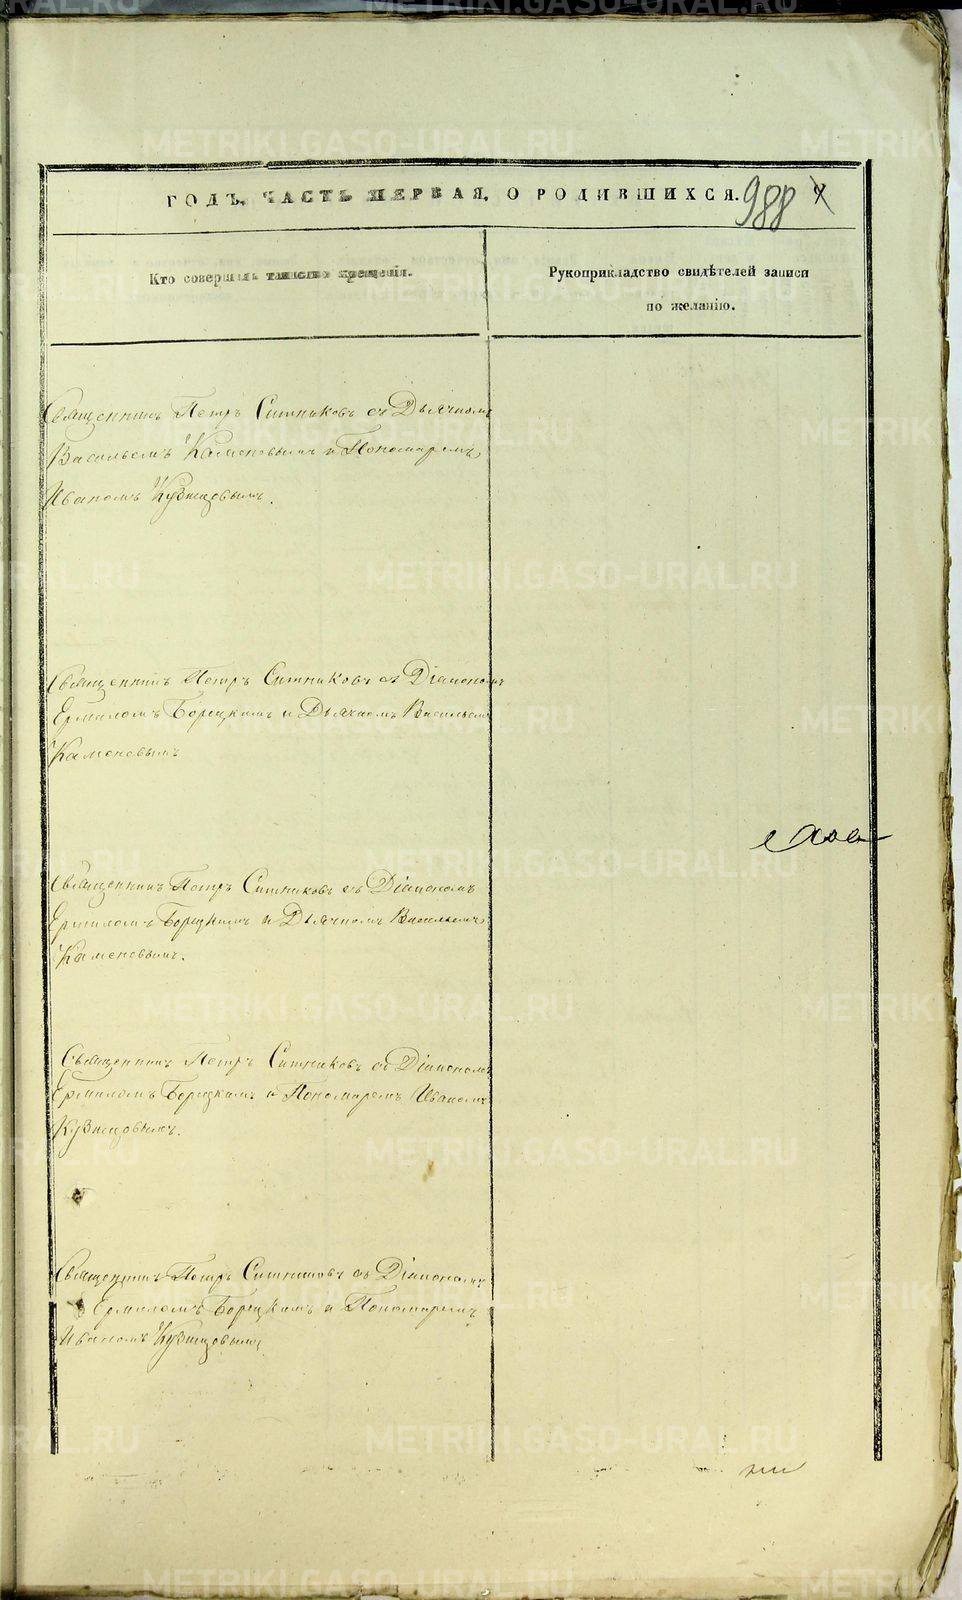 ГОДЪ, ЧАСТЬ ПЕРВАЯ, О РОДИВШИХСЯ. 988
Кто совершалъ таинство крещенія.
Рукоприкладство свидѣтелей записи
по желанію.
Священникъ Петръ Ситниковъ съ Дьячкомъ
Васильемъ Каменевымъ и Пономаремъ
Иваномъ Кузнецовымъ.
Священникъ Петръ Ситниковъ съ Діакономъ
Ермиломъ Борецкимъ и Дьячкомъ Васильемъ
Каменевымъ
Священникъ Петръ Ситниковъ съ Діакономъ
Ермиломъ Борецкимъ и Дьячкомъ Васильемъ
Каменевымъ.
Священникъ Петръ Ситниковъ съ Діакономъ
Ермиломъ Борецкимъ и Пономаремъ Иваномъ
Кузнецовымъ.
Священникъ Петръ Ситниковъ съ Діакономъ
Ермиломъ Борецкимъ и Пономаремъ
Иваномъ Кузнецовымъ
METRIKI.GASO-URAL.RU